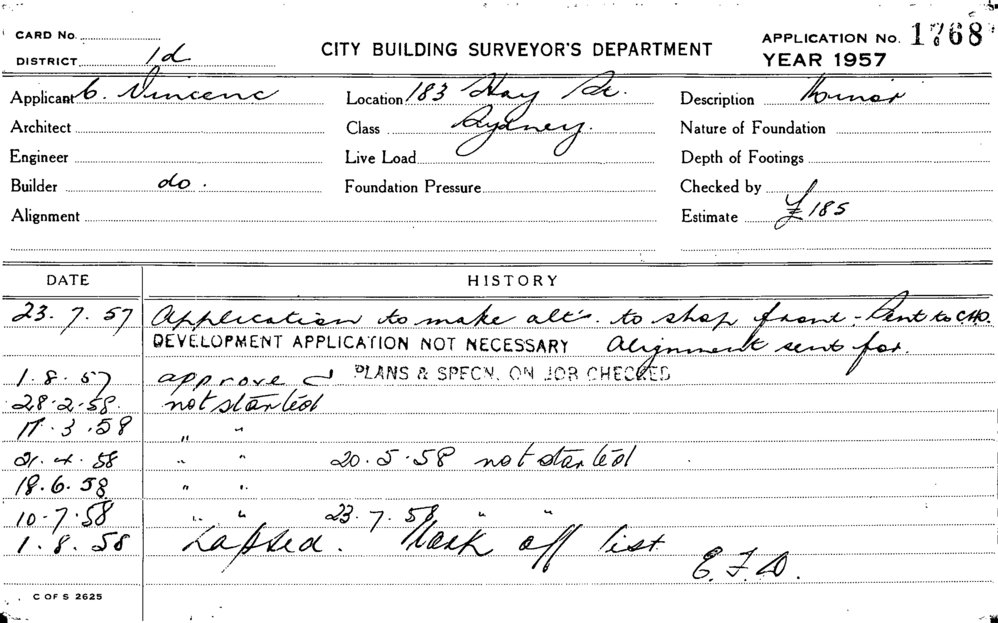 CARD No.
DISTRICT 1d
CITY BUILDING SURVEYOR'S DEPARTMENT
APPLICATION No. 1768
YEAR 1957
Applicant C. Vincenc
Location 183 Hay St.
Description Minor
Architect
Class Sydney.
Nature of Foundation
Engineer
Live Load
Depth of Footings
Builder do.
Foundation Pressure
Checked by
Alignment
Estimate £185
DATE HISTORY
23.7.57 Application to make alt's. to shop front - Sent to C.H.O.
DEVELOPMENT APPLICATION NOT NECESSARY Alignment sent for.
1.8.57 approve PLANS & SPECN. ON JOB CHECKED
28.2.58. not started
17.3.58 " "
21.4.58 " " 20.5.58 not started
18.6.58 " "
10.7.58 " " 23.7.58 " "
1.8.58 Lapsed. Mark off list
E.F.D.
C OF S 2625